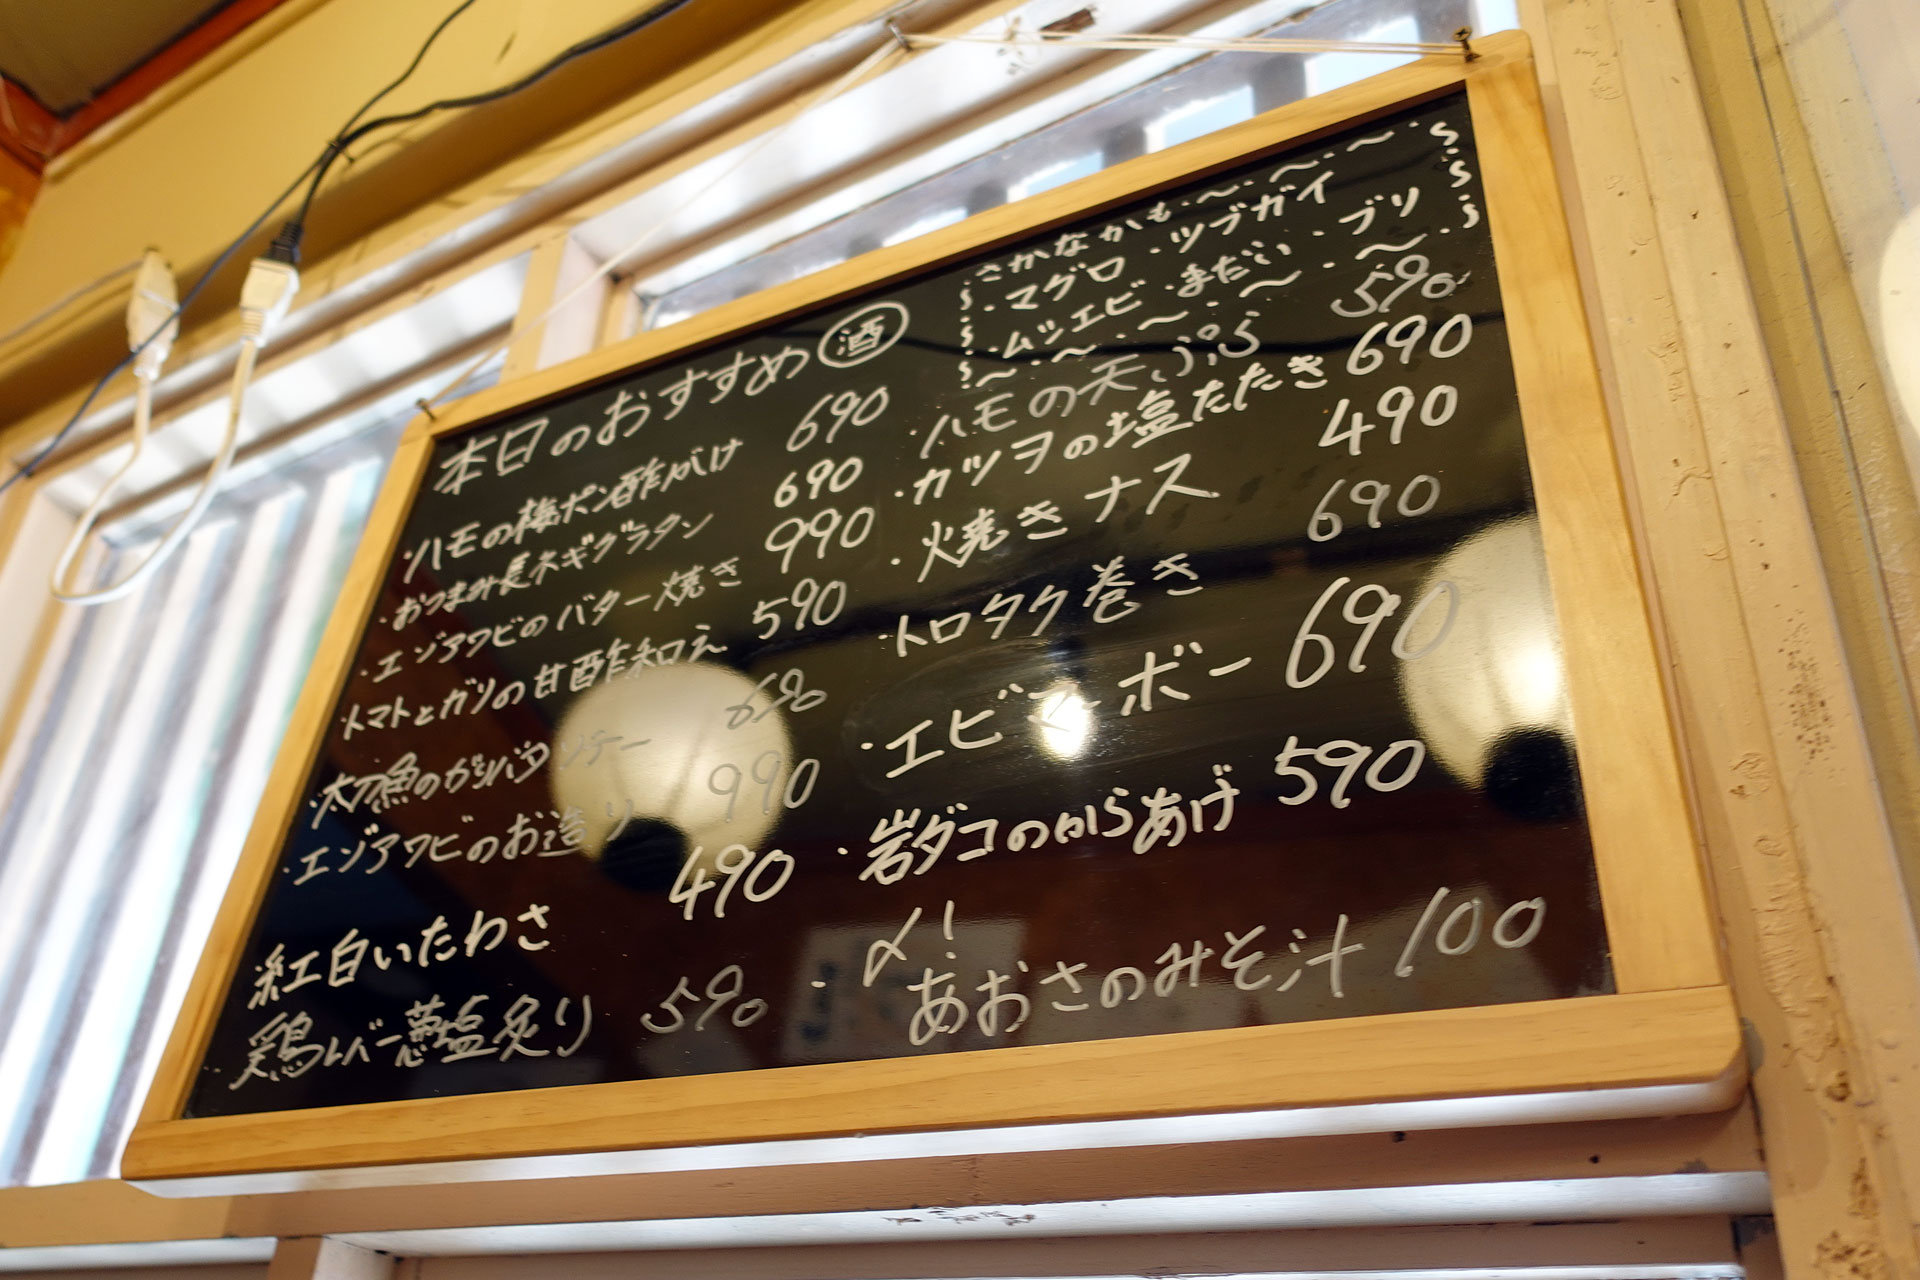 本日のおすすめ 酒
・ハモの梅ポン酢がけ 690
・おつまみ長ネギグラタン 690
・エゾアワビのバター焼き 990
・トマトとガリの甘酢和え 590
・太刀魚のガーリックソテー 690
・エゾアワビのお造り 990
紅白いたわさ 490
鶏レバー葱塩炙り 590
さかなかも
・マグロ・ツブガイ
・ムシエビ・まだい・ブリ
・ハモの天ぷら 590
・カツヲの塩たたき 690
・焼きナス 490
・トロタク巻き 690
・エビマーボー 690
・岩ダコのからあげ 590
・〆!
あおさのみそ汁 100